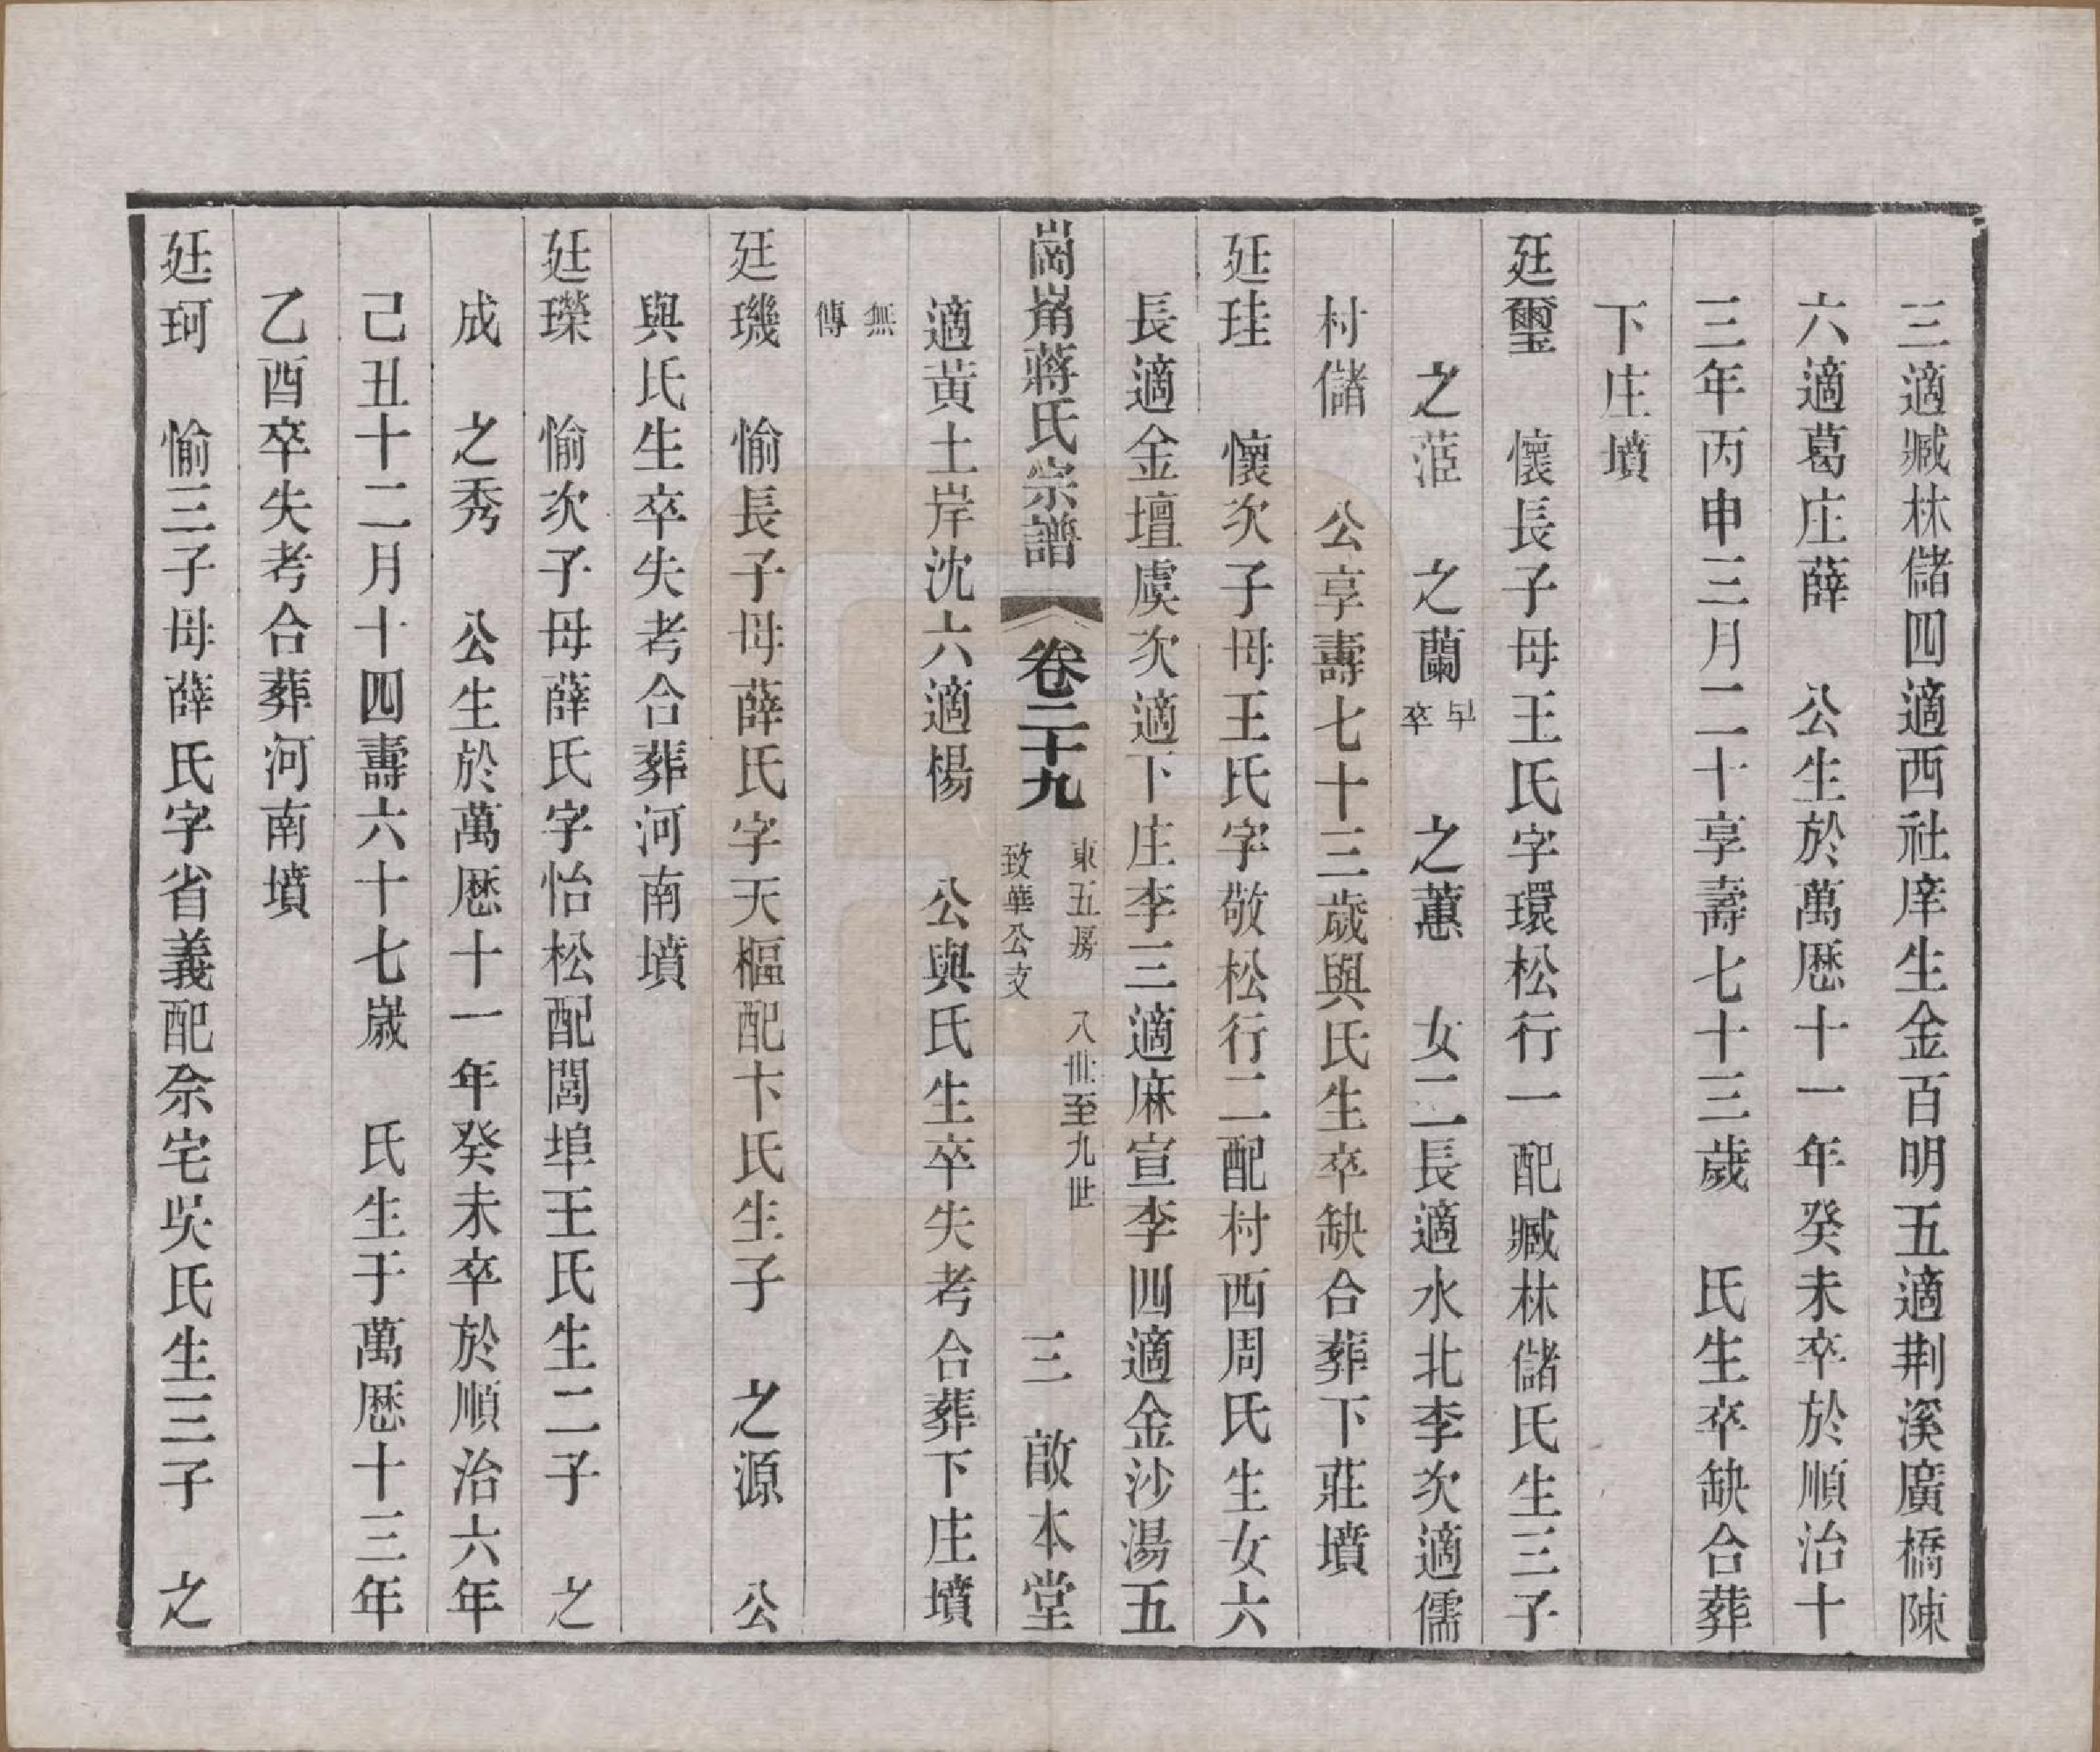 三適臧林儲四適西社庠生金百明五適荆溪廣橋陳
六適葛庄薛　公生於萬厯十一年癸未卒於順治十
三年丙申三月二十享壽七十三歲　氏生卒缺合葬
下庄墳
廷璽　懷長子母王氏字環松行一配臧林儲氏生三子
之茝　之蘭早卒　之蕙　女二長適水北李次適儒
村儲　公享壽七十三歲與氏生卒缺合葬下莊墳
廷珪　懷次子母王氏字敬松行二配村西周氏生女六
長適金壇虞次適下庄李三適麻宣李四適金沙湯五
崗崗蔣氏宗譜　卷二十九　東五房致華公支　八世至九世　三　啟本堂
適黃土岸沈六適楊　公與氏生卒失考合葬下庄墳
無傳
廷璣　愉長子母薛氏字天樞配卞氏生子　之源　公
與氏生卒失考合葬河南墳
廷瓅　愉次子母薛氏字怡松配閭埠王氏生二子　之
成　之秀　公生於萬厯十一年癸未卒於順治六年
己丑十二月十四壽六十七嵗　氏生于萬厯十三年
乙酉卒失考合葬河南墳
廷珂　愉三子母薛氏字省義配佘宅吳氏生三子　之